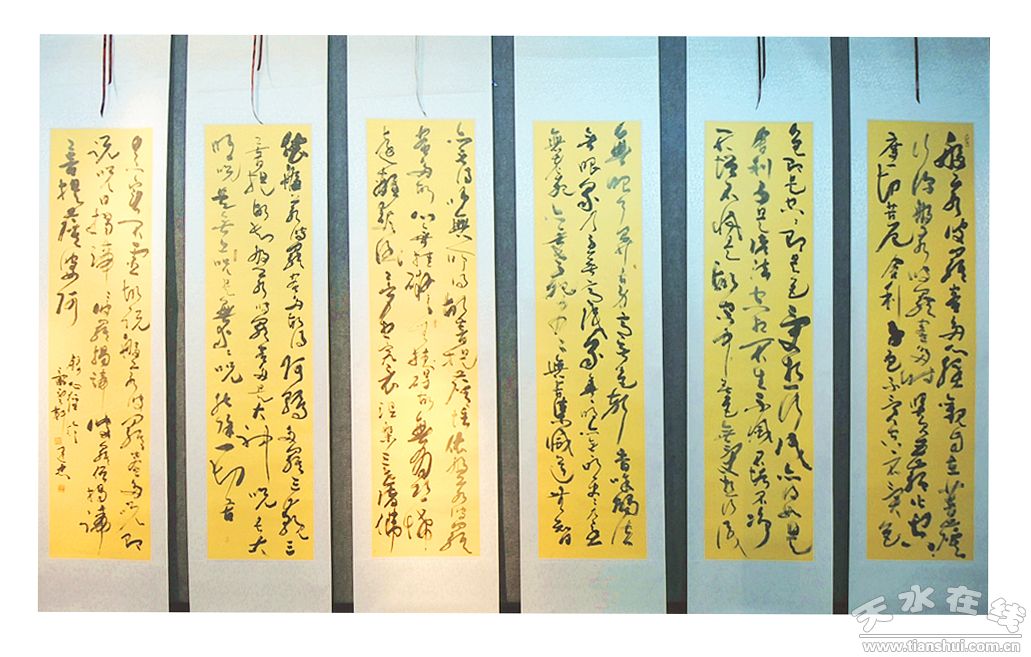 般若波羅蜜多心經觀自在菩薩
行深般若波羅蜜多時照見五蘊皆空
度一切苦厄舍利子色不異空空不異色
色即是空空即是色受想行識亦復如是
舍利子是諸法空相不生不滅不垢不淨
不增不減是故空中無色無受想行識
無眼耳鼻舌身意無色聲香味觸法
無眼界乃至無意識界無無明亦無無明盡乃至
無老死亦無老死盡無苦集滅道無智
亦無得以無所得故菩提薩埵依般若波羅
蜜多故心無罣礙無罣礙故無有恐怖
遠離顛倒夢想究竟涅槃三世諸佛
依般若波羅蜜多故得阿耨多羅三藐三
菩提故知般若波羅蜜多是大神咒是大
明咒是無上咒是無等等咒能除一切苦
真實不虛故說般若波羅蜜多咒即
說咒曰揭諦揭諦波羅揭諦波羅僧揭諦
菩提薩婆訶
心經
天水在线
www.tianshui.com.cn